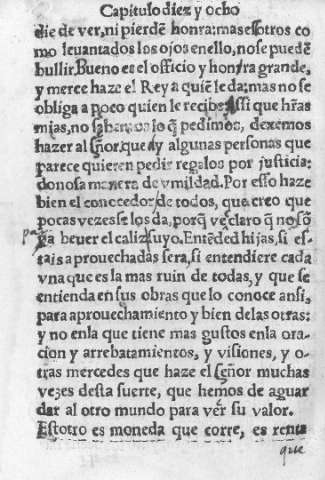 Capitulo diez y ocho
die de ver, ni pierdē honra: mas essotros co
mo leuantados los ojos enello, no se puedē
bullir. Bueno es el officio y honrra grande,
y merce haze el Rey a quiē le da: mas no se
obliga a poco quien le recibe. Assi que hr̄as
mias, no sabemos lo q̄ pedimos, dexemos
hazer al señor, que ay algunas personas que
parece quieren pedir regalos por justicia:
donosa manera de vmildad. Por esso haze
bien el conocedor de todos, que creo que
pocas vezes se los da, porq̄ ve claro q̄ no sō
pa
ṗa beuer el caliz suyo. Entēded hijas, si es-
tais aprouechadas sera, si entendiere cada
vna que es la mas ruin de todas, y que se
entienda en sus obras que lo conoce ansi,
para aprouechamiento y bien de las otras:
y no enla que tiene mas gustos enla ora-
cion y arrebatamientos, y visiones, y o-
tras mercedes que haze el señor muchas
vezes desta suerte, que hemos de aguar
dar al otro mundo para ver su valor.
Estotro es moneda que corre, es renta
que